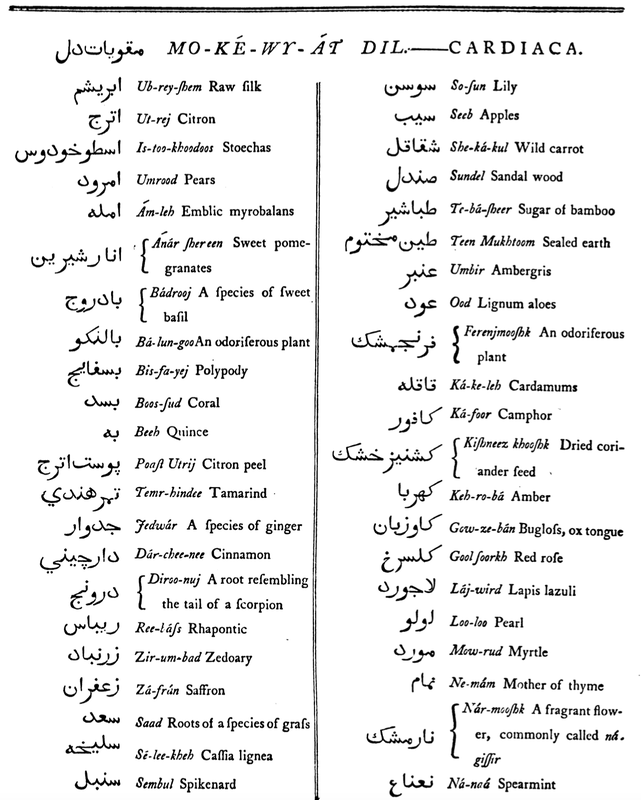 مقويات دل MO-KÉ-WY-ÁT DIL.——CARDIACA.
ابريشم Ub-rey-ſhem Raw ſilk
اترج Ut-rej Citron
اسطوخودوس Is-too-khoodoos Stoechas
امرود Umrood Pears
امله Ám-leh Emblic myrobalans
انار شيرين Ánár ſhereen Sweet pome-
granates
بادروج Bádrooj A ſpecies of ſweet
baſil
بالنكو Bá-lun-goo An odoriferous plant
بسفايج Bis-fa-yej Polypody
بسد Boos-ſud Coral
به Beeh Quince
پوست اترج Poaſt Utrij Citron peel
تمر هندي Temr-hindee Tamarind
جدوار Jedwár A ſpecies of ginger
دارچيني Dár-chee-nee Cinnamon
درونج Diroo-nuj A root reſembling
the tail of a ſcorpion
ريباس Ree-láſs Rhapontic
زرنباد Zir-um-bad Zedoary
زعفران Zá-frán Saffron
سعد Saad Roots of a ſpecies of graſs
سليخه Sé-lee-kheh Caſſia lignea
سنبل Sembul Spikenard
سوسن So-ſun Lily
سيب Seeb Apples
شقاقل She-ká-kul Wild carrot
صندل Sundel Sandal wood
طباشير Te-bá-ſheer Sugar of bamboo
طين مختوم Teen Mukhtoom Sealed earth
عنبر Umbir Ambergris
عود Ood Lignum aloes
فرنجمشك Ferenjmooſhk An odoriferous
plant
قاقله Ká-ke-leh Cardamums
كافور Ká-foor Camphor
كشنيز خشك Kiſhneez khooſhk Dried cori-
ander ſeed
كهربا Keh-ro-bá Amber
كاوزبان Gow-ze-bán Bugloſs, ox tongue
كلسرخ Gool ſoorkh Red roſe
لاجورد Láj-wird Lapis lazuli
لولو Loo-loo Pearl
مورد Mow-rud Myrtle
نمام Ne-mám Mother of thyme
نارمشك Nár-mooſhk A fragrant flow-
er, commonly called ná-
giſſir
نعناع Ná-naá Spearmint